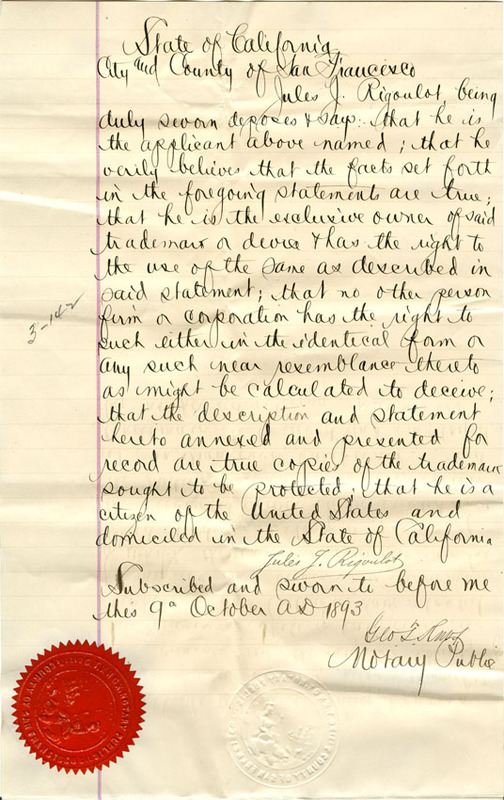 State of California
City and County of San Francisco
Jules J. Rigoulot, being
duly sworn deposes & says: that he is
the applicant above named; that he
verily believes that the facts set forth
in the foregoing statements are true;
that he is the exclusive owner of said
trademark or device & has the right to
the use of the same as described in
said statement; that no other person
firm or corporation has the right to
such either in the identical form or
any such near resemblance thereto
as might be calculated to deceive;
that the description and statement
hereto annexed and presented for
record are true copies of the trademark
sought to be protected, that he is a
citizen of the United States and
domiciled in the State of California
Jules J. Rigoulot
Subscribed and sworn to before me
this 9th October AD 1893
Geo T.
Notary Public
3-142